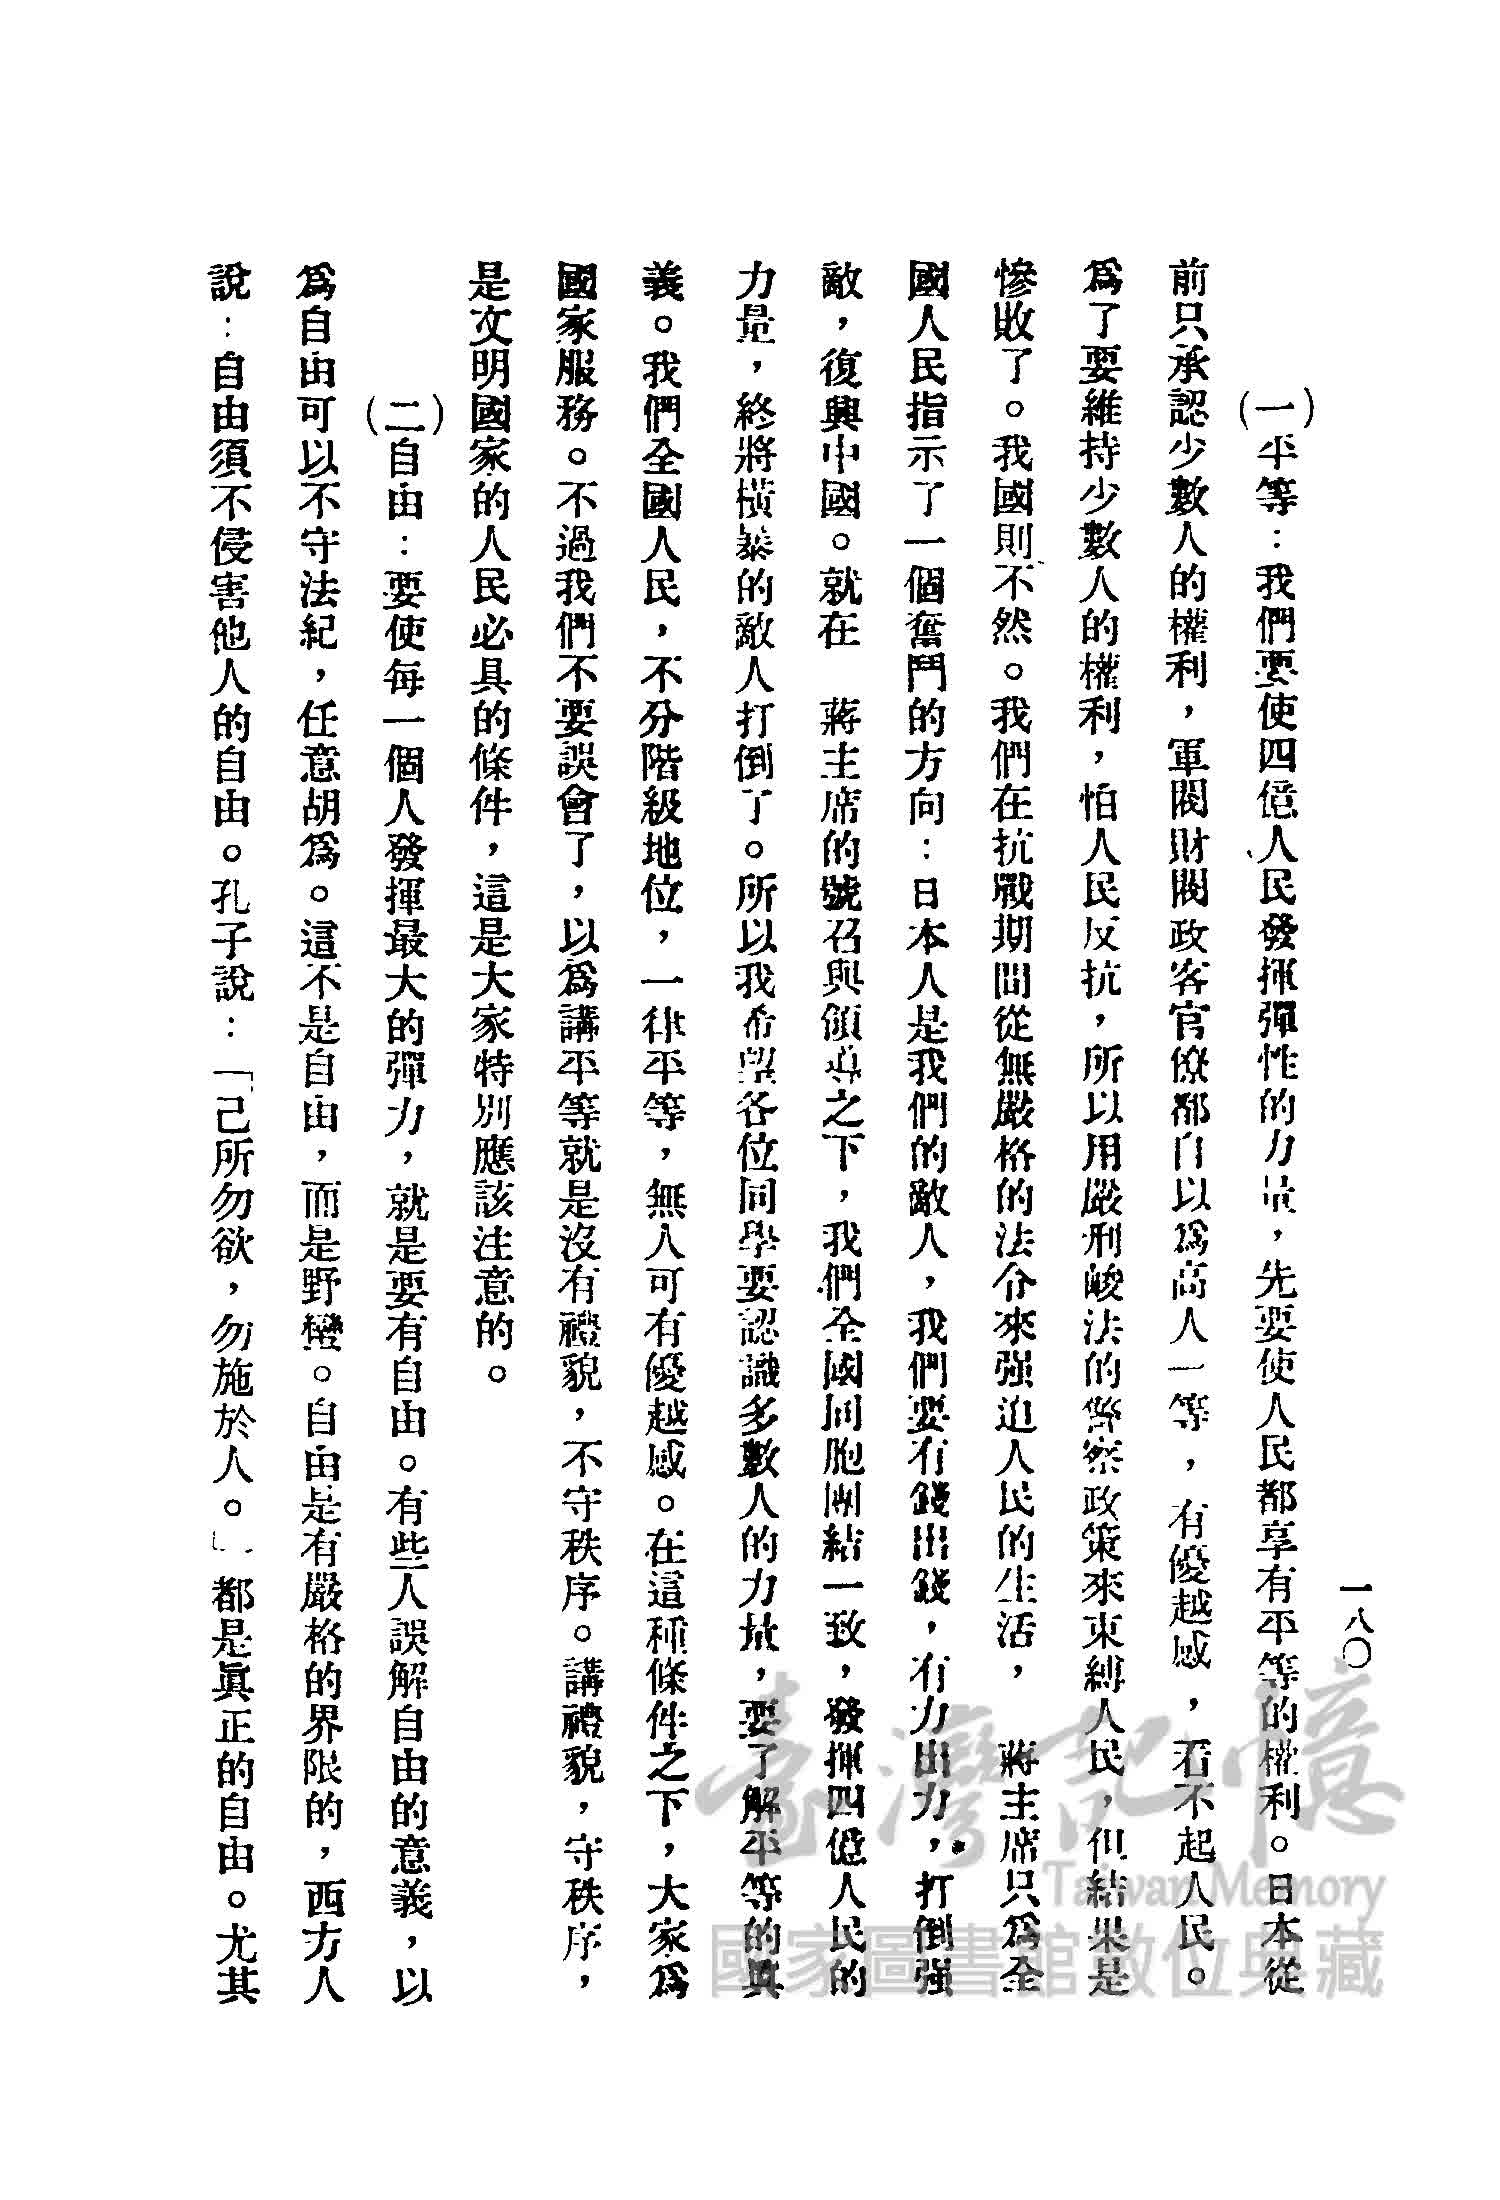 一八〇
（一）平等：我們要使四億人民發揮彈性的力量，先要使人民都享有平等的權利。日本從
前只承認少數人的權利，軍閥財閥政客官僚都自以爲高人一等，有優越感，看不起人民。
爲了要維持少數人的權利，怕人民反抗，所以用嚴刑峻法的警察政策來束縛人民，但結果是
慘敗了。我國則不然。我們在抗戰期間從無嚴格的法令來强迫人民的生活，　蔣主席只爲全
國人民指示了一個奮鬥的方向：日本人是我們的敵人，我們要有錢出錢，有力出力，打倒强
敵，復興中國。就在　蔣主席的號召與領導之下，我們全國同胞團結一致，發揮四億人民的
力量，終將橫暴的敵人打倒了。所以我希望各位同學要認識多數人的力量，要了解平等的眞
義。我們全國人民，不分階級地位，一律平等，無人可有優越感。在這種條件之下，大家爲
國家服務。不過我們不要誤會了，以爲講平等就是沒有禮貌，不守秩序。講禮貌，守秩序，
是文明國家的人民必具的條件，這是大家特別應該注意的。
（二）自由：要使每一個人發揮最大的彈力，就是要有自由。有些人誤解自由的意義，以
爲自由可以不守法紀，任意胡爲。這不是自由，而是野蠻。自由是有嚴格的界限的，西方人
說：自由須不侵害他人的自由。孔子說：「己所勿欲，勿施於人。」都是眞正的自由。尤其
臺灣記憶
Taiwan Memory
國家圖書館數位典藏